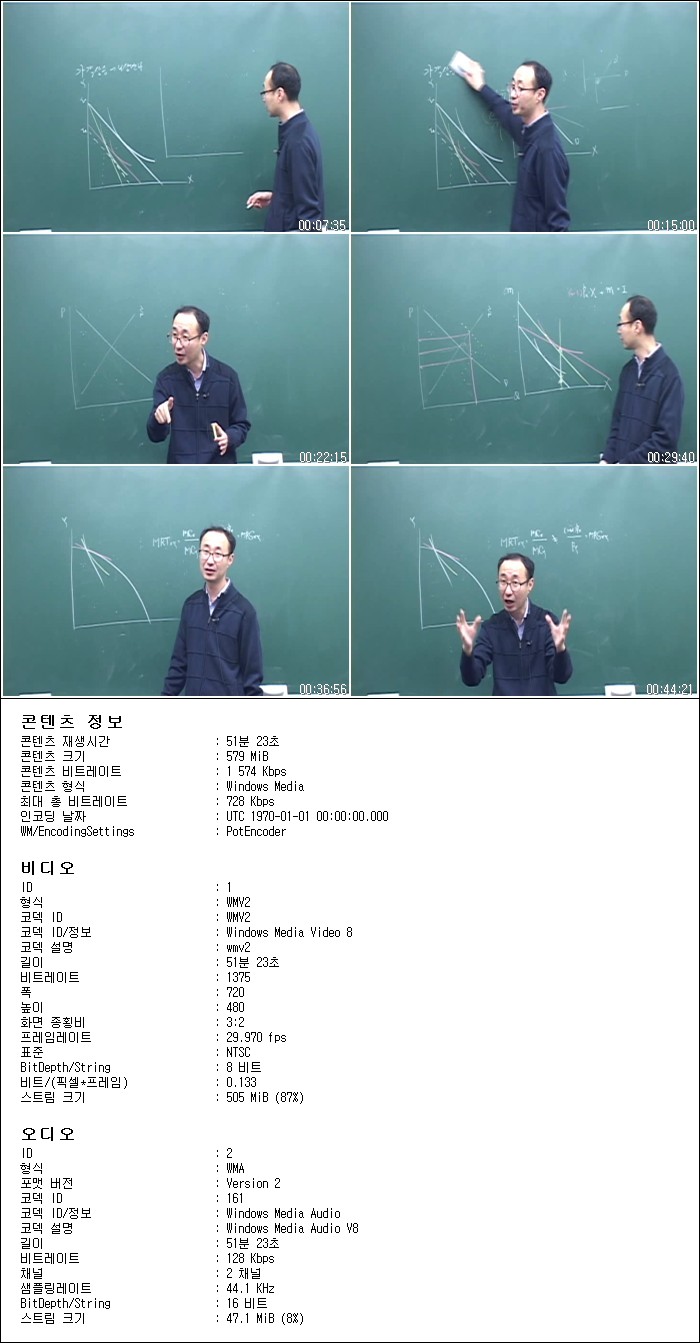 Y
X
00:07:35
X
D
00:15:00
P
00:22:15
P
D
Q
m
X
00:29:40
Y
MRTxy = MCx
00:36:56
Y
MRTxy = MCx
Py
00:44:21
콘텐츠 정보
콘텐츠 재생시간 : 51분 23초
콘텐츠 크기 : 579 MiB
콘텐츠 비트레이트 : 1 574 Kbps
콘텐츠 형식 : Windows Media
최대 총 비트레이트 : 728 Kbps
인코딩 날짜 : UTC 1970-01-01 00:00:00.000
WM/EncodingSettings : PotEncoder
비디오
ID : 1
형식 : WMV2
코덱 ID : WMV2
코덱 ID/정보 : Windows Media Video 8
코덱 설명 : wmv2
길이 : 51분 23초
비트레이트 : 1375
폭 : 720
높이 : 480
화면 종횡비 : 3:2
프레임레이트 : 29.970 fps
표준 : NTSC
BitDepth/String : 8 비트
비트/(픽셀*프레임) : 0.133
스트림 크기 : 505 MiB (87%)
오디오
ID : 2
형식 : WMA
포맷 버전 : Version 2
코덱 ID : 161
코덱 ID/정보 : Windows Media Audio
코덱 설명 : Windows Media Audio V8
길이 : 51분 23초
비트레이트 : 128 Kbps
채널 : 2 채널
샘플링레이트 : 44.1 KHz
BitDepth/String : 16 비트
스트림 크기 : 47.1 MiB (8%)